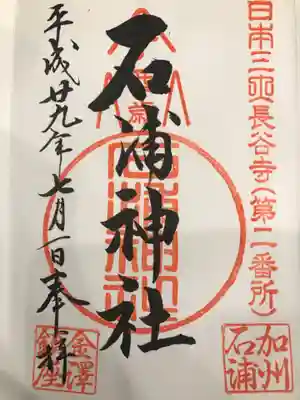 日本三所長谷寺(第二番所)
石浦神社
平成廿九年七月一日奉拝
加州
石浦
金澤